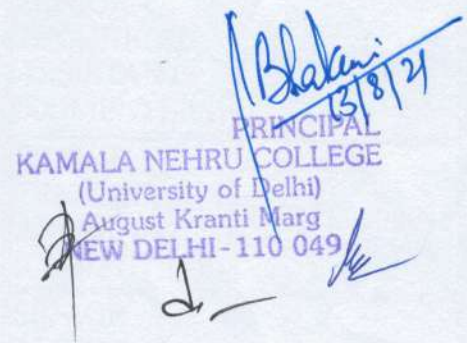 13/8/21
PRINCIPAL
KAMALA NEHRU COLLEGE
(University of Delhi)
August Kranti Marg
NEW DELHI-110 049